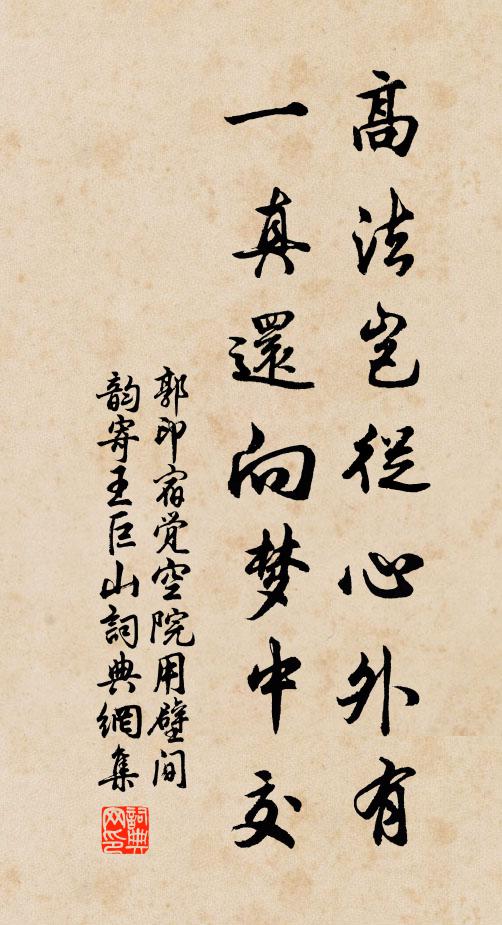 高法岂從心外有
一真還向梦中交
郭印宿觉空院用壁间
韵寄王巨山詞典網集
詞典网印